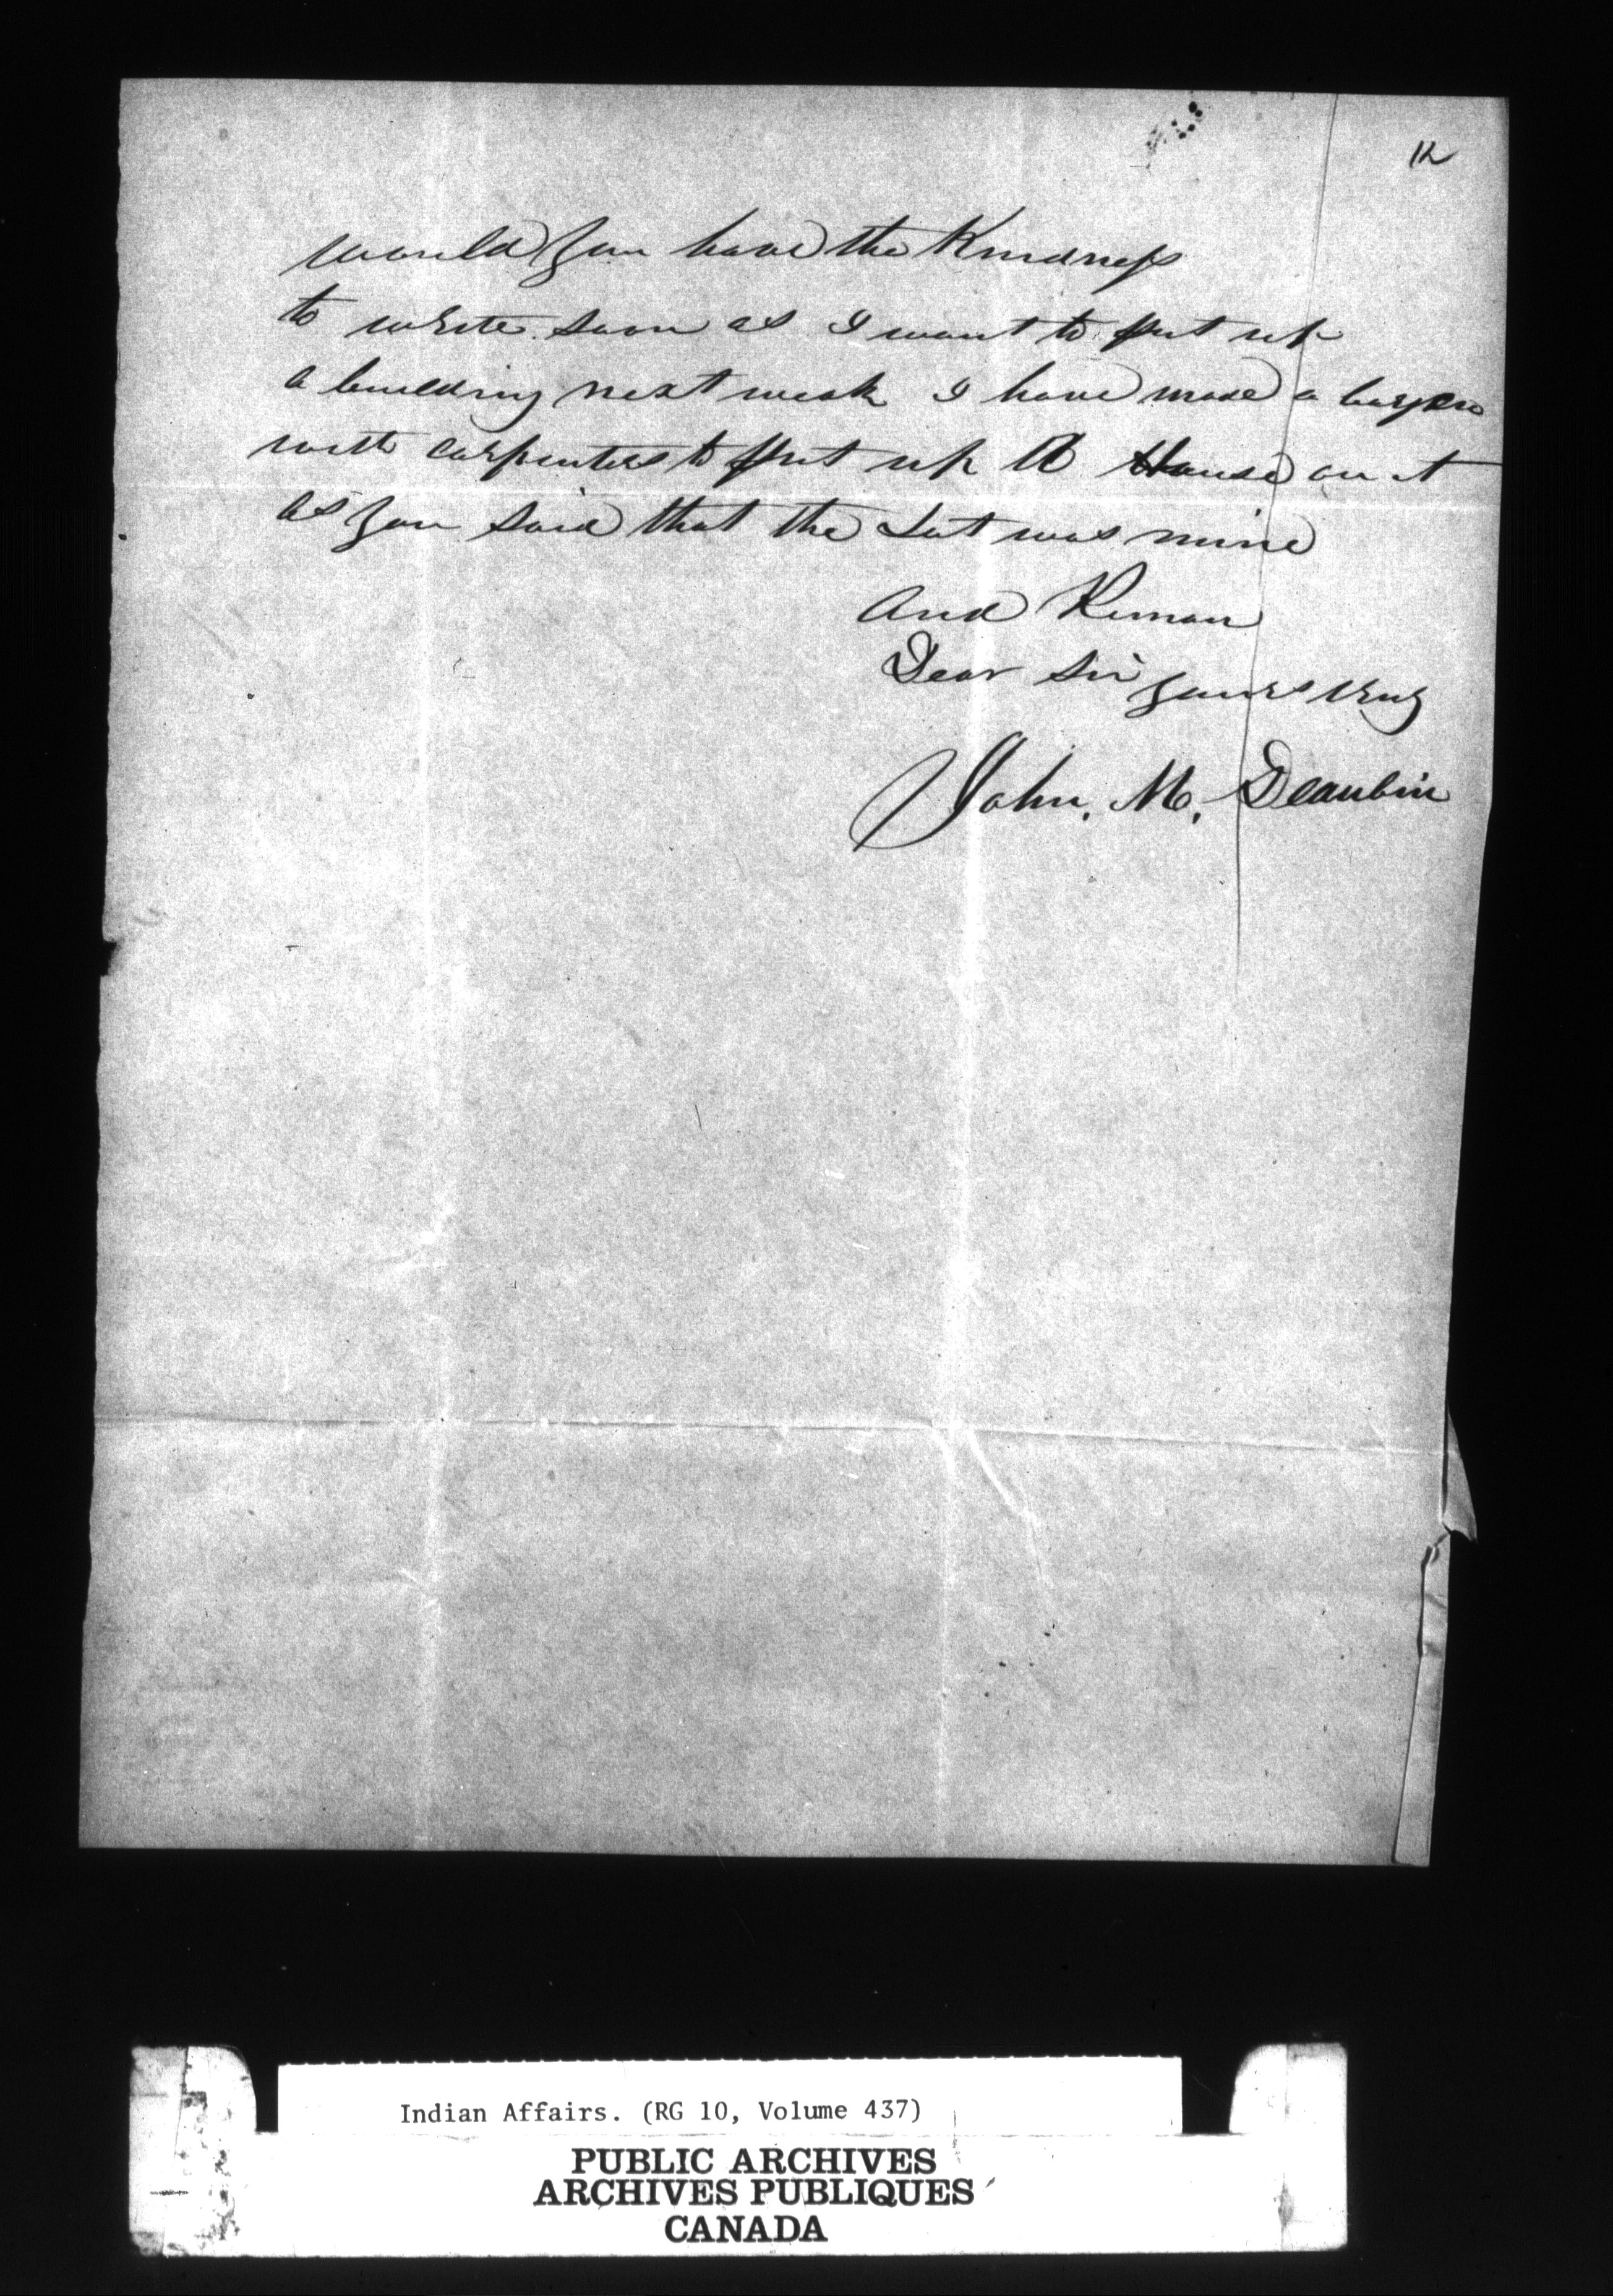 12
would you have the Kindness
to write soon as I want to put up
a building next week I have made a bargen
with carpenters to put up A House on it
as you said that the Lot was mine
And Reman
Dear Sir yours truly
John. M.
Indian Affairs. (RG 10, Volume 437)
PUBLIC ARCHIVES
ARCHIVES PUBLIQUES
CANADA